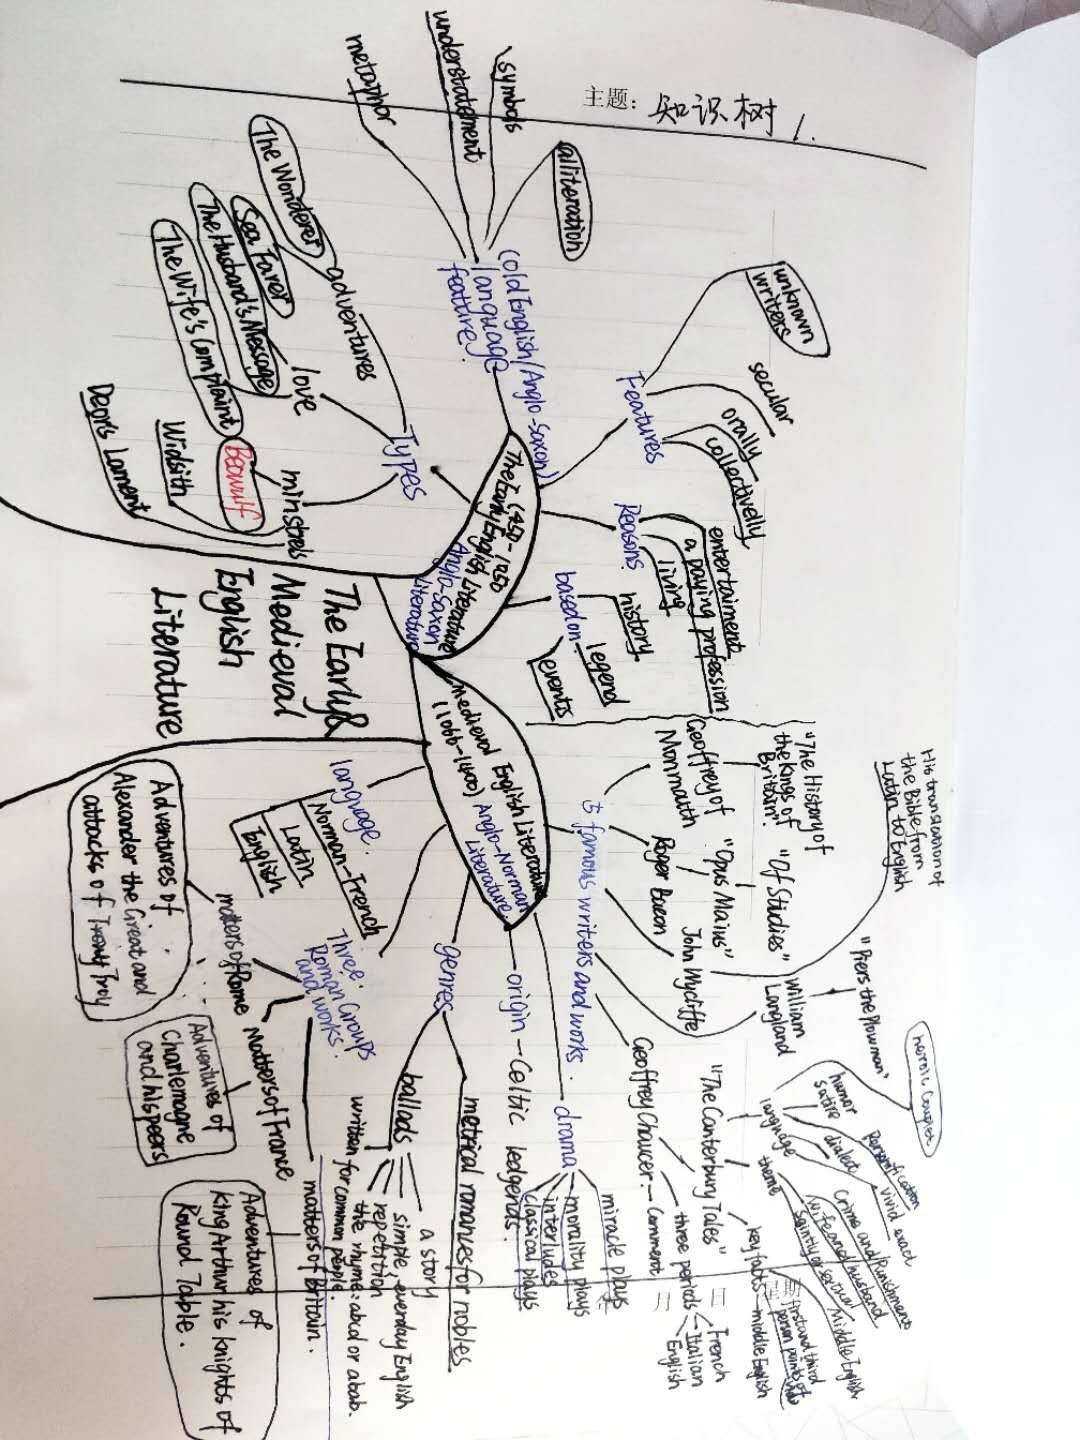 主题: 知识树 1.
alliteration
symbols
understatement
metaphor
(old English/Anglo-Saxon)
language
feature.
unknown
writers
secular
orally
collectivelly
Features
Reasons
entertaiment
a paying profession
living
based on
history
legend
events
The Early English Literature
(450-1050
Anglo-Saxon
Literature
Types
adventures
The Wonderer
Sea Farer
love
The Husband's Message
The Wife's Complaint
minstrels
Beowulf
Widsith
Deor's Lament
The Early&
Medieval
English
Literature
Medieval English Literature
(1066-1400) Anglo-Norman
Literature.
5 famous writers and works.
"The History of
the Kings of
Britain".
Geoffrey of
Monmouth
"Of Studies"
"Opus Maius"
Roger Bacon
John Wycliffe
His translation of
the Bible from
Latin to English
"Piers the Plowman"
William
Langland
Geoffrey Chaucer.
Comment
"The Canterbury Tales"
three periods
French
Italian
English
key facts
middle English
first and third
person points of
Middle English
theme
Crime and Punishment
wife and husband
saintly or sexual
language
humor
satire
dialect
Personification
vivid exact
heroic Couplet
期
日
月
drama
miracle plays
morality plays
interludes
classical plays
origin - Celtic ledgends.
genres
metrical romances for nobles
ballads
a story
simple, everday English
repetition
the rhyme: abcd or abab.
written for common people.
language.
Norman-French
Latin
English
Three.
Roman Groups
and works.
matters of Rome
Adventures of
Alexander the Great and
attacks of Troy
Matters of France
Adventures of
Charlemagne
and his peers
matters of Britain.
Adventures of
king Arthur his knights of
Round Table.